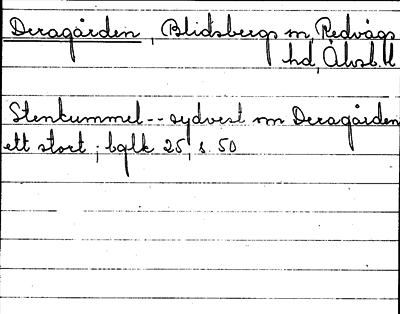 Deragården, Blidsbergs sn, Redvägs
hd, Älvsb. ll
Stenkummel -- sydvest om Deragården
ett stort; bglk 25, s. 50